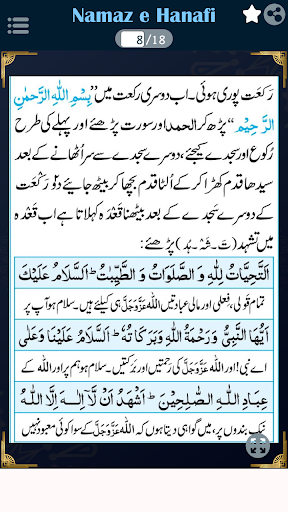 Namaz e Hanafi
8/18
رَکعَت پوری ہوئی۔ اب دوسری رکعت میں ”بِسْمِ اللّٰہِ الرَّحْمٰنِ
الرَّحِیْمِ“ پڑھ کر الحمد اور سورت پڑھئے اور پہلے کی طرح
رُکوع اور سجدے کیجئے، دوسرے سجدے سے سر اُٹھانے کے بعد
سیدھا قدم کھڑا کر کے اُلٹا قدم بچھا کر بیٹھ جائیے دو رَکْعَت کے
دوسرے سَجدے کے بعد بیٹھنا قَعْدَہ کہلاتا ہے اب قَعْدَہ
میں تشہد (تَ۔شَہْ۔ہُد) پڑھئے:
اَلتَّحِیَّاتُ لِلّٰہِ وَ الصَّلَوَاتُ وَ الطَّیِّبٰتُ ؕ اَلسَّلَامُ عَلَیْكَ
تمام قَولی، فِعلی اور مالی عبادتیں اللّٰہ عَزَّوَجَلَّ ہی کیلئے ہیں۔ سلام ہو آپ پر
اَیُّھَا النَّبِیُّ وَرَحْمَۃُ اللّٰہِ وَبَرَکَاتُہٗ ؕ اَلسَّلَامُ عَلَیْنَا وَعَلٰی
اے نبی! اور اللّٰہ عَزَّوَجَلَّ کی رَحمتیں اور بَرَکتیں۔ سلام ہو ہم پر اور اللّٰہ کے
عِبَادِ اللّٰہِ الصّٰلِحِیْنَ ؕ اَشْھَدُ اَنْ لَّاۤ اِلٰـہَ اِلَّا اللّٰہُ
نیک بندوں پر، میں گواہی دیتا ہوں کہ اللّٰہ عَزَّوَجَلَّ کے سوا کوئی معبود نہیں